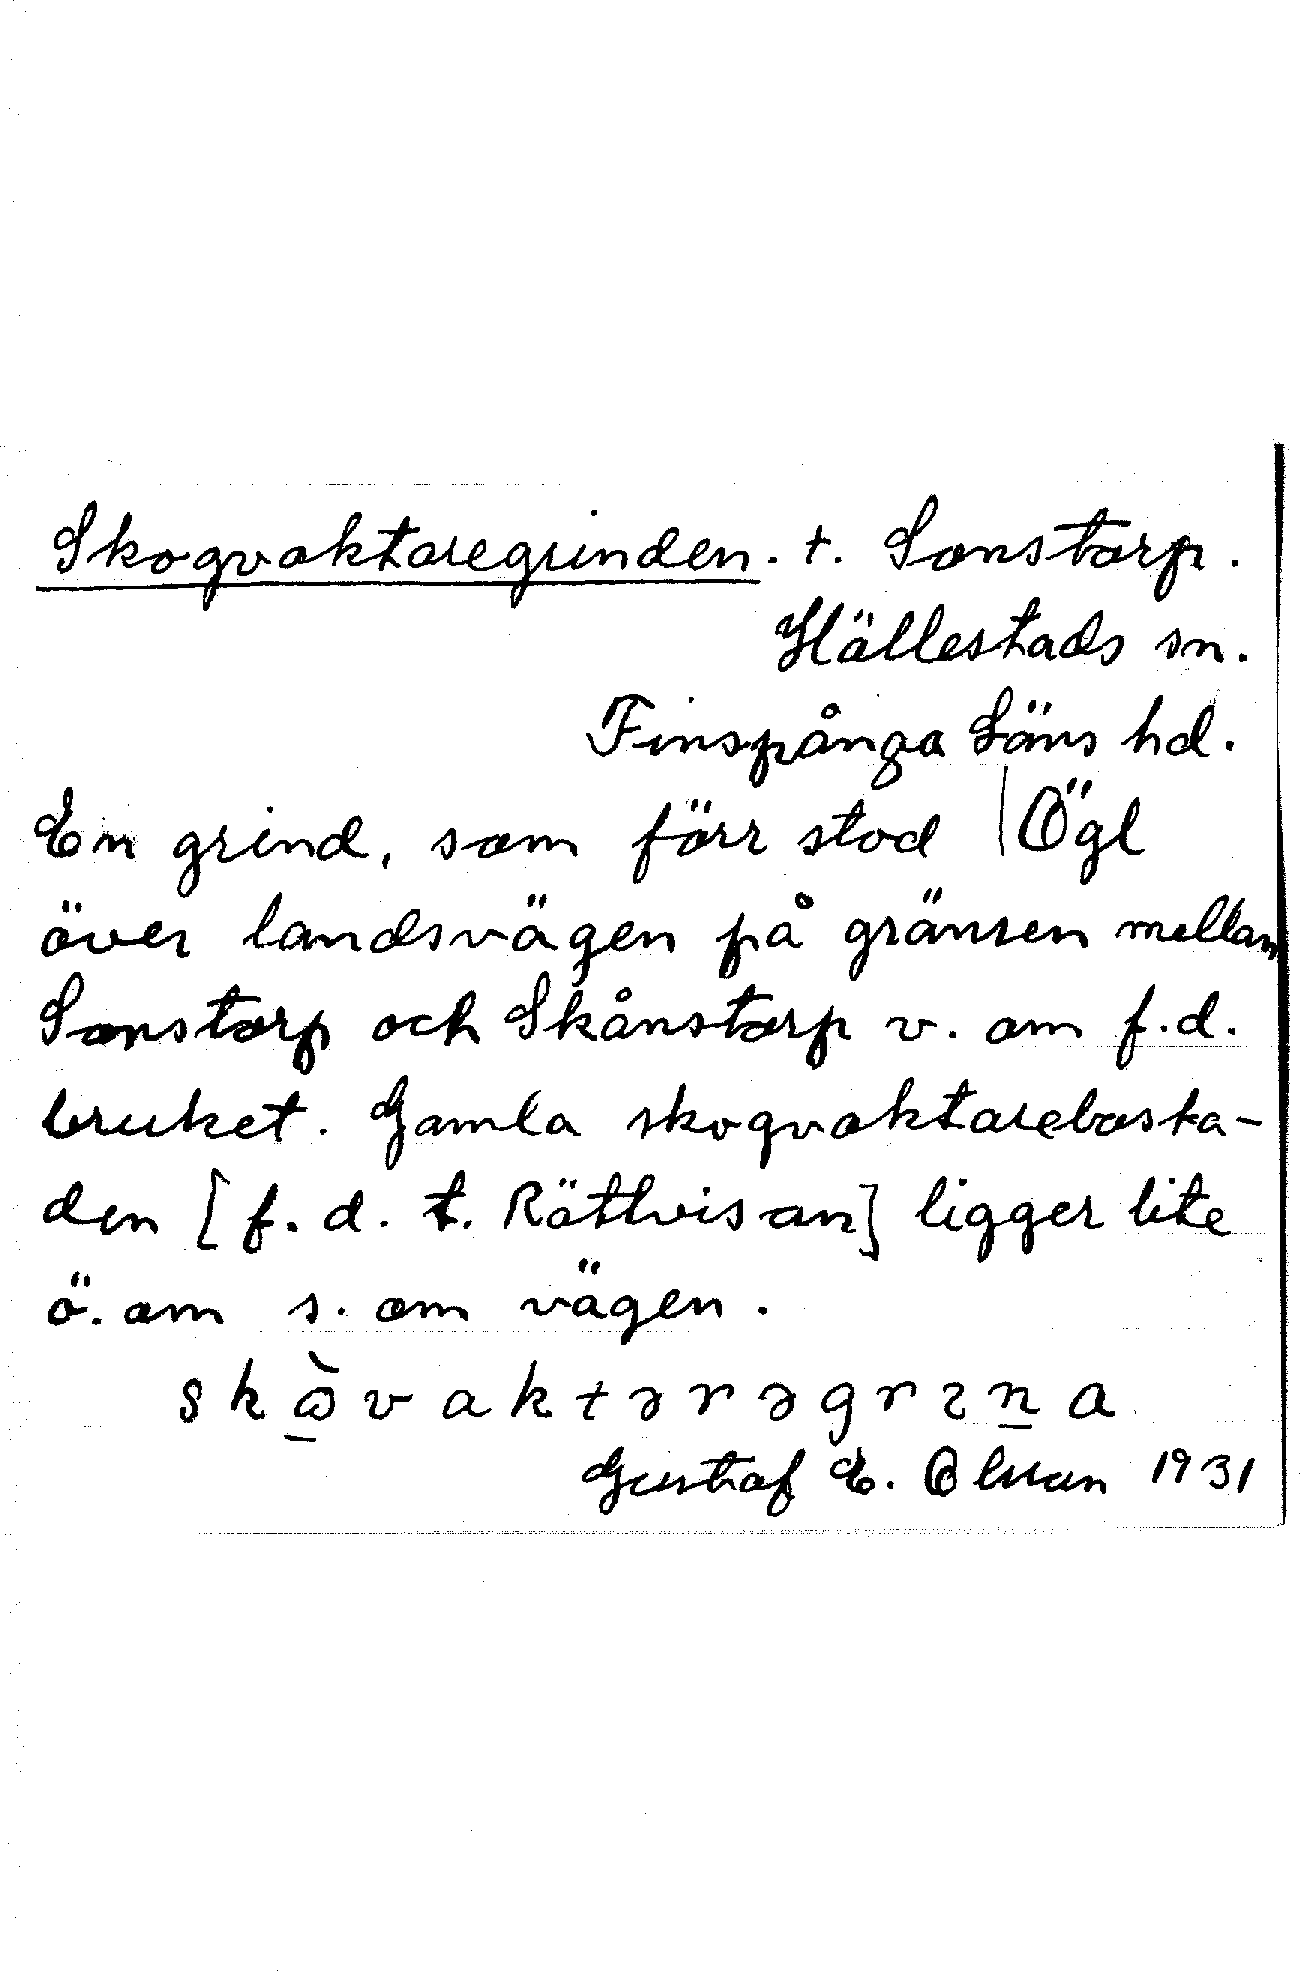 Skogvaktaregrinden. t. Sonstorp.
Hällestads sn.
Finspånga Läns hd.
En grind, som förr stod | Ögl
över landsvägen på gränsen mellan
Sonstorp och Skånstorp v. om f.d.
bruket. Gamla skogvaktarebosta-
den [f.d. t. Rättvisan] ligger lite
ö. om s. om vägen.
Gustaf E. Olsson 1931